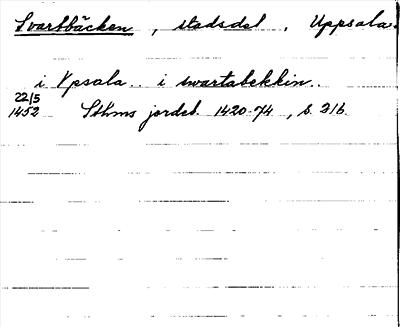 Svartbäcken, stadsdel, Uppsala.
i Vpsala.. i swartabekkin..
22/5
1452 Sthms jordeb. 1420-74, s. 316.